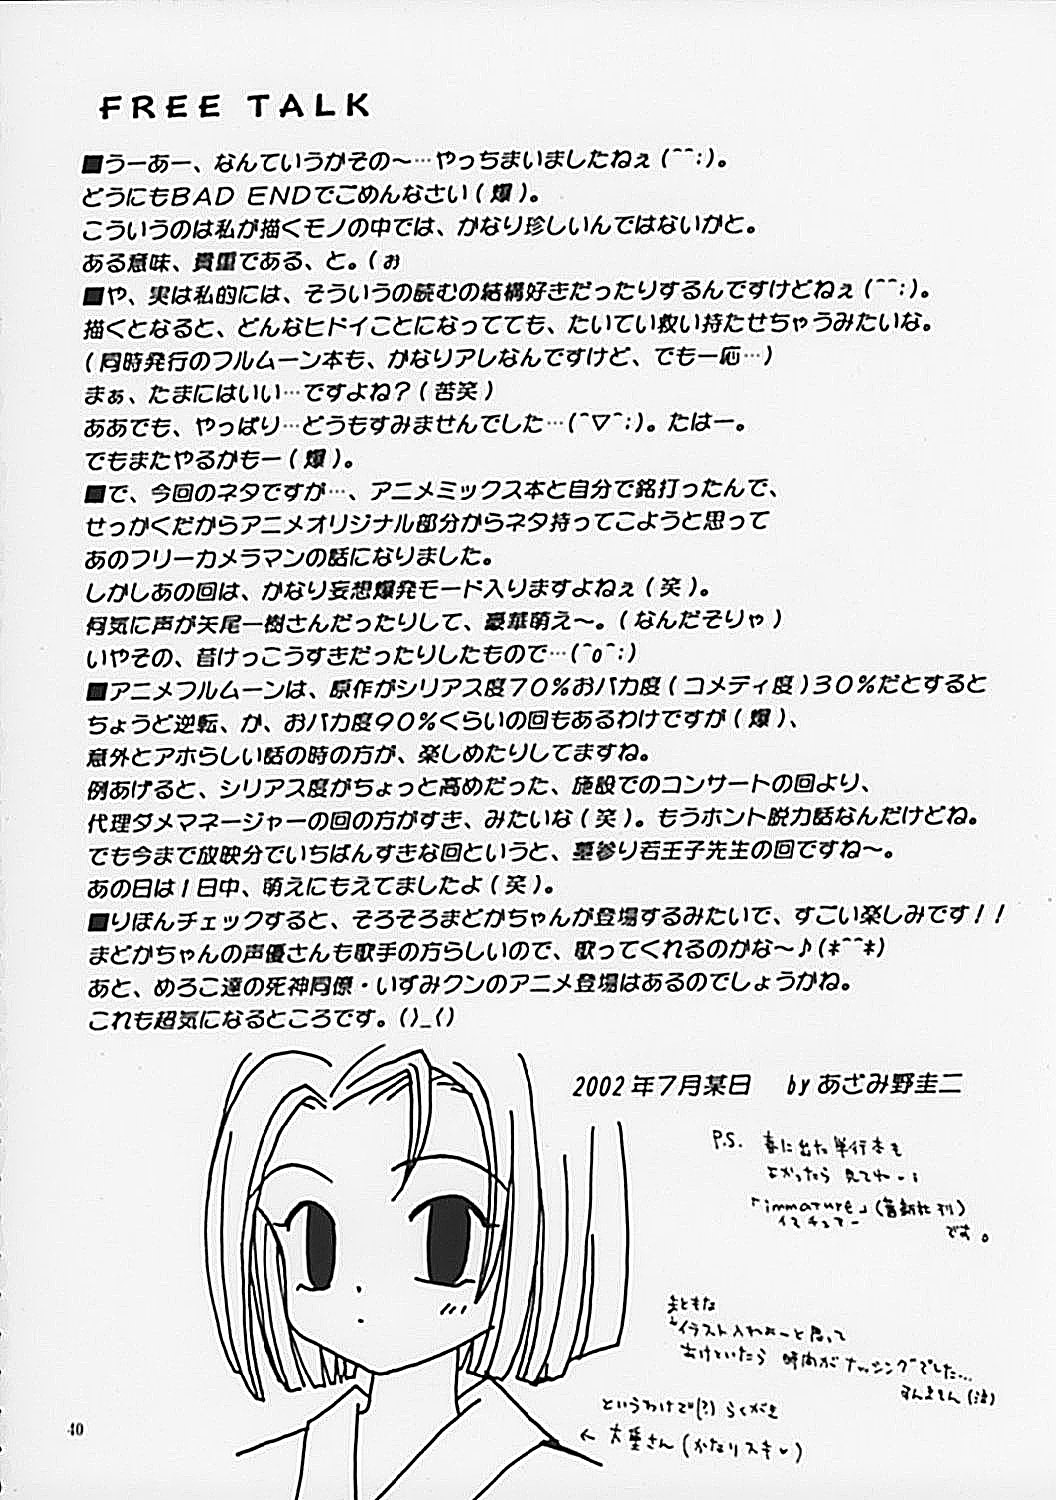 FREE TALK
■うーあー、なんていうかその〜…やっちまいましたねぇ(^^;)。
どうにもBAD ENDでごめんなさい(爆)。
こういうのは私が描くモノの中では、かなり珍しいんではないかと。
ある意味、貴重である、と。(ぉ
■や、実は私的には、そういうの読むの結構好きだったりするんですけどねぇ(^^;)。
描くとなると、どんなヒドイことになってても、たいてい救い持たせちゃうみたいな。
(同時発行のフルムーン本も、かなりアレなんですけど、でも一応…)
まぁ、たまにはいい…ですよね?(苦笑)
ああでも、やっぱり…どうもすみませんでした…(^▽^;)。たはー。
でもまたやるかもー(爆)。
■で、今回のネタですが…、アニメミックス本と自分で銘打ったんで、
せっかくだからアニメオリジナル部分からネタ持ってこようと思って
あのフリーカメラマンの話になりました。
しかしあの回は、かなり妄想爆発モード入りますよねぇ(笑)。
何気に声が矢尾一樹さんだったりして、豪華萌え〜。(なんだそりゃ)
いやその、昔けっこうすきだったりしたもので…(^o^;)
■アニメフルムーンは、原作がシリアス度70%おバカ度(コメディ度)30%だとすると
ちょうど逆転、か、おバカ度90%くらいの回もあるわけですが(爆)、
意外とアホらしい話の時の方が、楽しめたりしてますね。
例あげると、シリアス度がちょっと高めだった、施設でのコンサートの回より、
代理ダメマネージャーの回の方がすき、みたいな(笑)。もうホント脱力話なんだけどね。
でも今まで放映分でいちばんすきな回というと、墓参り若王子先生の回ですね〜。
あの日は1日中、萌えにもえてましたよ(笑)。
■りぼんチェックすると、そろそろまどかちゃんが登場するみたいで、すごい楽しみです!!
まどかちゃんの声優さんも歌手の方らしいので、歌ってくれるのかな〜♪(*^^*)
あと、めろこ達の死神同僚・いずみクンのアニメ登場はあるのでしょうかね。
これも超気になるところです。()_()
2002年7月某日 byあざみ野圭二
P.S. 春に出た単行本も
よかったら 見てね
「immature」(蒼新社刊)
イマチュアー
です。
まともな
イラスト入れよーと思って
あけといたら 時間がナッシングでした…
すんません(泣)
というわけで(?) らくがき
← 大重さん(かなりスキ♥)
40